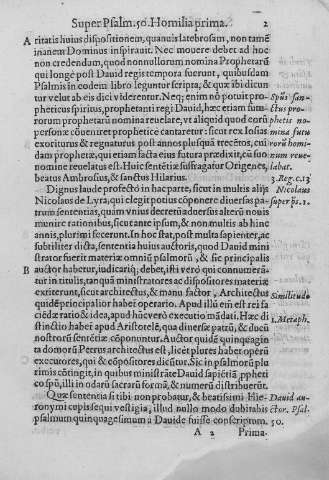 Super Psalm. 50. Homilia prima. 2
A ritatis huius dispositionem, quanuis latebrosam, non tamē
inanem Dominus inspirauit. Nec mouere debet ad hoc
non credendum, quod nonnullorum nomina Prophetarū
qui longè post Dauid regis tempora fuerunt, quibusdam
Psalmis in codem libro leguntur scripta, & quæ ibi dicun
tur velut ab eis dici viderentur. Neq; enim nō potuit pro
pheticus spiritus, prophetanti regi Dauid, hæc etiam futu
rorum prophetarū nomina reuelare, vt aliquid quod eorū
personæ cōueniret prophetice cantaretur: sicut rex Iosias
exoriturus & regnaturus post annos plusquā trecentos, cui
dam prophetæ, qui etiam facta eius futura prædixit, cū suo
nomine reuelatus est. Huic sententiæ suffragatur Origenes,
beatus Ambrosius, & sanctus Hilarius.
Spūs san-
ctus pro-
phetis no
mina futu
rorū homi-
num reue-
labat.
3. Reg. c. 13
Dignus laude profectò in hac parte, sicut in multis alijs
Nicolaus de Lyra, qui elegit potius cōponere diuersas pa-
trum sententias, quam vnius decretū aduersus alterū nouis
munire rationibus, sicut ante ipsum, & non multis ab hinc
annis, plurimi fecerunt. In hoc stat, post multa sapienter, ac
subtiliter dicta, sententia huius auctoris, quod Dauid mini
strator fuerit materiæ omniū psalmorū, & sic principalis
B auctor habetur, iudicariq; debet, isti verò qui connumerā-
tur in titulis, tanquā ministratores ac dispositores materiæ
exiterunt, sicut Architectus, & manu factor, Architectus
quidē principalior habet operario. Apud illū em̄ est rei fa
ciēdæ ratio & idea, apud hūc verò executio mādati. Hæc di
stinctio habet̄ apud Aristotelē, qua diuersæ patrū, & ducū
nostrorū sententiæ cōponuntur. Auctor quidē quinquagin
ta domorū Petrus architectus est, licèt plures habet operū
executores, qui & cōpositores dicūtur. Sic in psalmorū plu
rimis cōtingit, in quibus ministrāte Dauid sapiētiā ppheti
co spū, illi in odarū sacrarū formā, & numerū distribuerūt.
Nicolaus
super ps. 1.
Similitudo
1. Metaph.
Quæ sententia si tibi non probatur, & beatissimi Hie-
ronymi cupis sequi vestigia, illud nullo modo dubitabis
psalmum quinquagesimum a Dauide fuisse conscriptum.
Dauid au-
ctor. Psal.
50.
A 2 Prima.